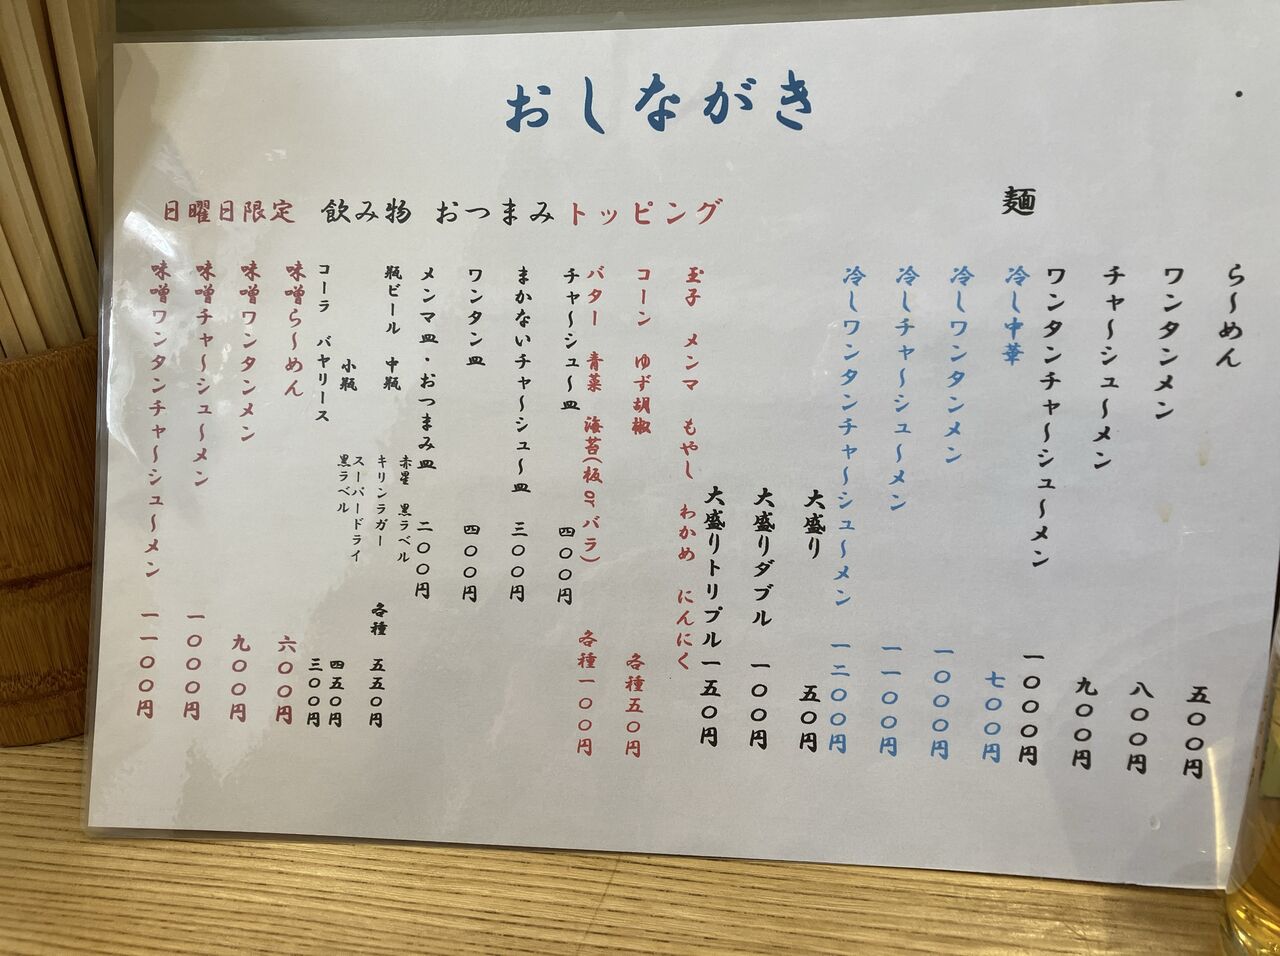 おしながき
麺
ら〜めん 五〇〇円
ワンタンメン 八〇〇円
チャ〜シュ〜メン 九〇〇円
ワンタンチャ〜シュ〜メン 一〇〇〇円
冷し中華 七〇〇円
冷しワンタンメン 一〇〇〇円
冷しチャ〜シュ〜メン 一一〇〇円
冷しワンタンチャ〜シュ〜メン 一二〇〇円
大盛り 五〇円
大盛りダブル 一〇〇円
大盛りトリプル 一五〇円
トッピング
玉子 メンマ もやし わかめ にんにく
コーン ゆず胡椒 各種五〇円
バター 青菜 海苔(板orバラ) 各種一〇〇円
おつまみ
チャ〜シュ〜皿 四〇〇円
まかないチャ〜シュ〜皿 三〇〇円
ワンタン皿 四〇〇円
メンマ皿・おつまみ皿 二〇〇円
飲み物
瓶ビール 中瓶 赤星 黒ラベル
キリンラガー
スーパードライ
各種 五五〇円
小瓶 黒ラベル 四五〇円
コーラ バヤリース 三〇〇円
日曜日限定
味噌ら〜めん 六〇〇円
味噌ワンタンメン 九〇〇円
味噌チャ〜シュ〜メン 一〇〇〇円
味噌ワンタンチャ〜シュ〜メン 一一〇〇円